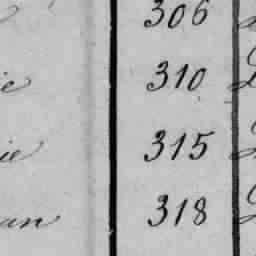 306
ie 310
ie 315
an 318